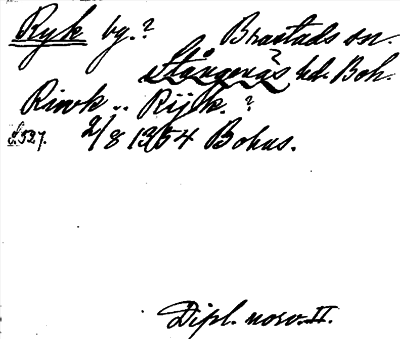 Ryk by.? Brastads sn.
Stångenäs hd. Boh.
Riwk .. Rijk.?
s. 527. 2/8 1354 Bohus.
Dipl. norv. II.